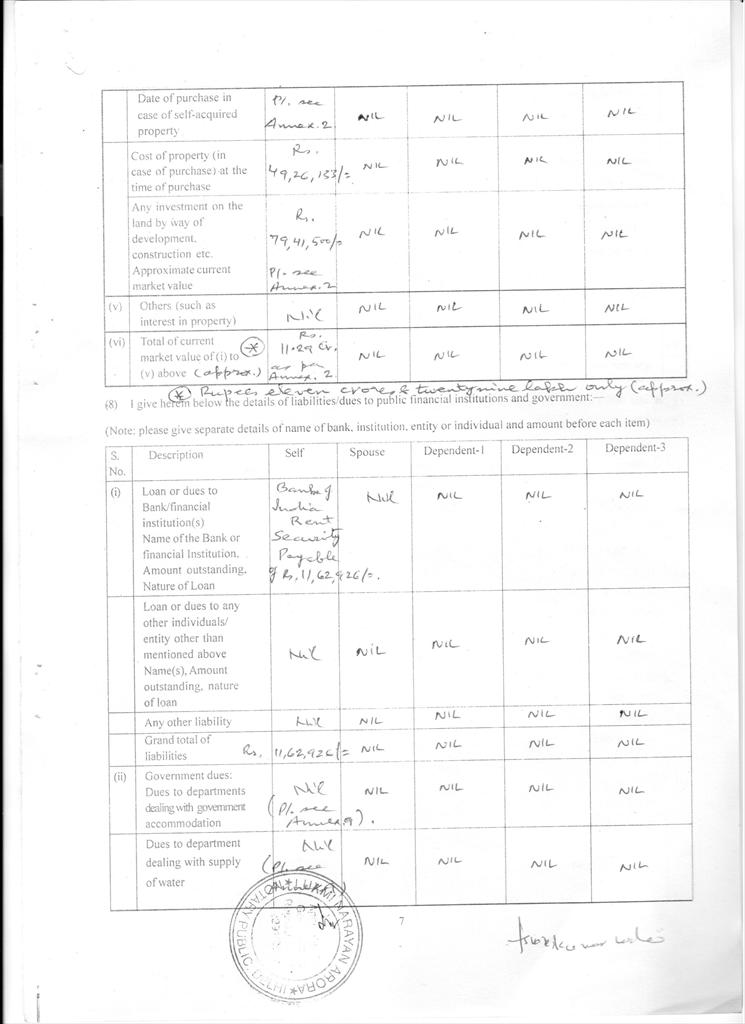 Date of purchase in case of self-acquired property Pl. see Annex. 2 NIL NIL NIL NIL
Cost of property (in case of purchase) at the time of purchase Rs. 49,26,133/= NIL NIL NIL NIL
Any investment on the land by way of development, construction etc. Rs. 79,41,500/= NIL NIL NIL NIL
Approximate current market value Pl. see Annex. 2
(v) Others (such as interest in property) Nil NIL NIL NIL NIL
(vi) Total of current market value of (i) to (v) above (approx.) * Rs. 11.29 Cr. as per Annex. 2. NIL NIL NIL NIL
* Rupees eleven crores & twentynine lakhs only (approx.)
(8) I give herein below the details of liabilities/dues to public financial institutions and government:—
(Note: please give separate details of name of bank, institution, entity or individual and amount before each item)
S. No. Description Self Spouse Dependent-1 Dependent-2 Dependent-3
(i) Loan or dues to Bank/financial institution(s) Name of the Bank or financial Institution, Amount outstanding, Nature of Loan Bank of India Rent Security Payable of Rs, 11,62,926/=. Nil NIL NIL NIL
Loan or dues to any other individuals/ entity other than mentioned above Name(s), Amount outstanding, nature of loan Nil NIL NIL NIL NIL
Any other liability Nil NIL NIL NIL NIL
Grand total of liabilities Rs. 11,62,926/= NIL NIL NIL NIL
(ii) Government dues: Dues to departments dealing with government accommodation Nil (Pl. see Annex. 9). NIL NIL NIL NIL
Dues to department dealing with supply of water Nil (Pl. see NIL NIL NIL NIL
7
NARAYAN ARORA * NOTARY PUBLIC, DELHI *